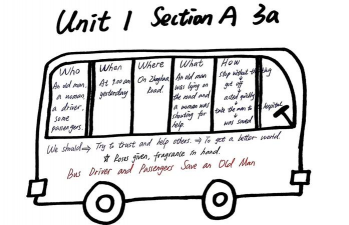 Unit 1 Section A 3a
Who
An old man,
a woman,
a driver,
some
passengers.
When
At 9:00 am
yesterday
Where
On Zhonghua
Road.
What
An old man
was lying on
the road and
a woman was
shouting for
help.
How
stop without thinking
get off
acted quickly
take the man to the hospital
was saved
We should⇒ Try to trust and help others. ⇒ To get a better world.
Roses given, fragrance in hand.
Bus Driver and Passengers Save an Old Man